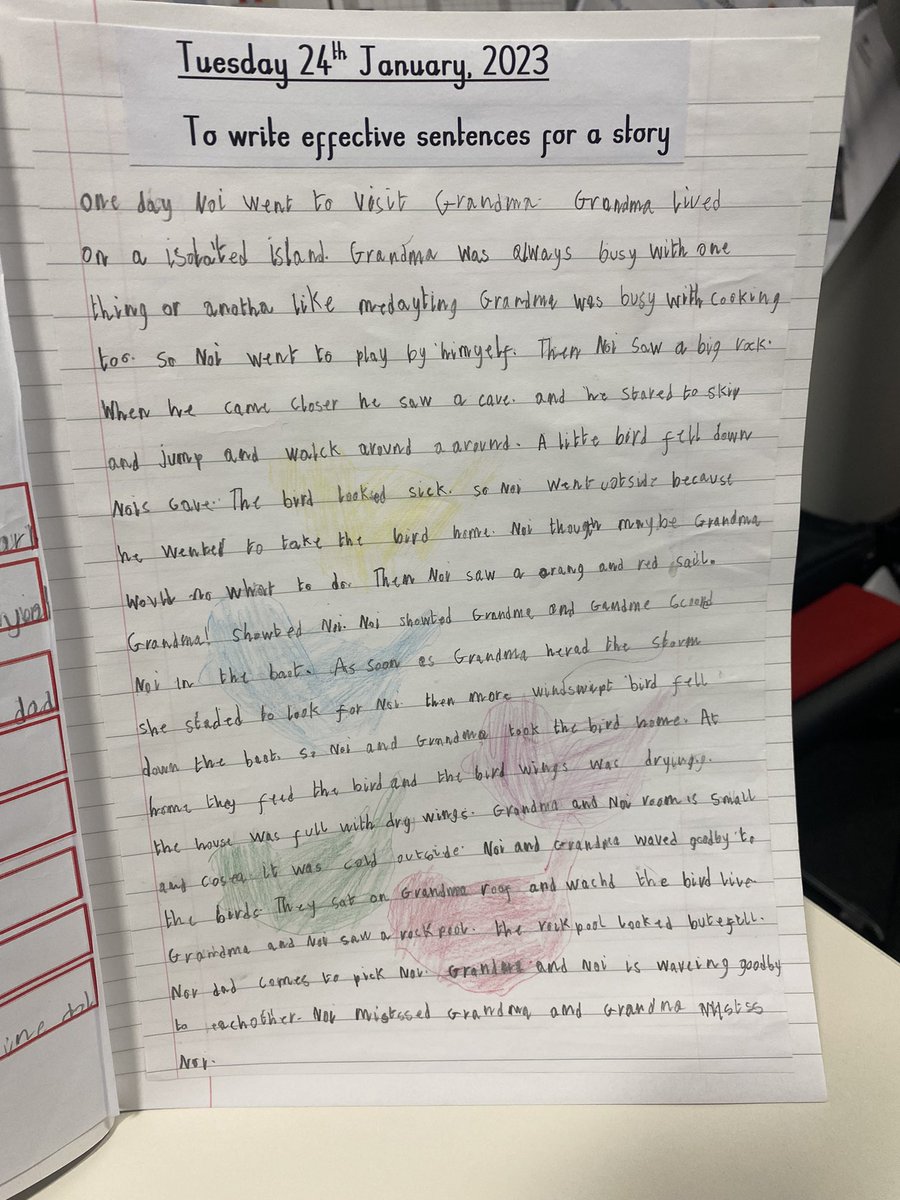 Tuesday 24th January, 2023
To write effective sentences for a story
One day Noi went to visit Grandma. Grandma lived
on a isolated island. Grandma was always busy with one
thing or anotha like medayting Grandma was busy with cooking
too. so Noi went to play by himyself. Then Noi saw a big rock.
When he came closer he saw a cave. and he stared to skip
and jump and walck around a around. A litte bird fell down
Nois cave. The bird looked sick. so Noi went outside because
he wented to take the bird home. Noi though maybe Grandma
would no what to do. Then Noi saw a orang and red sail.
Grandma! Showted Noi. Noi showted Grandma and
Noi in the boat. As soon as Grandma herad the storm
she staded to look for Noi. then more windswept bird fell
down the boat. So Noi and Grandma took the bird home. At
home they feed the bird and the bird wings was drying.
the house was full with dry wings. Grandma and Noi room is small
and it was cold outside. Noi and Grandma waved goodby to
the birds They sat on Grandma roof and wachd the bird live
Grandma and Noi saw a rockpool. The rockpool looked
Noi dad comes to pick Noi. Grandma and Noi is waveing goodby
to eachother. Noi mistssed Grandma and Grandma
Noi.
ar
you
dad